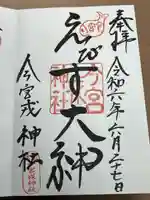 奉拝
令和六年六月二十七日
えびす大神
今宮戎神社